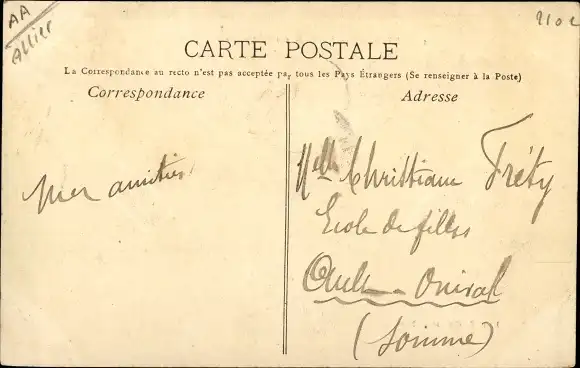 AA
Allier
CARTE POSTALE
La Correspondance au recto n'est pas acceptée par tous les Pays Étrangers (Se renseigner à la Poste)
Correspondance
Adresse
mes amitiés
Melle Christiane Fréty
Ecole de filles
Ault-Onival
(Somme)